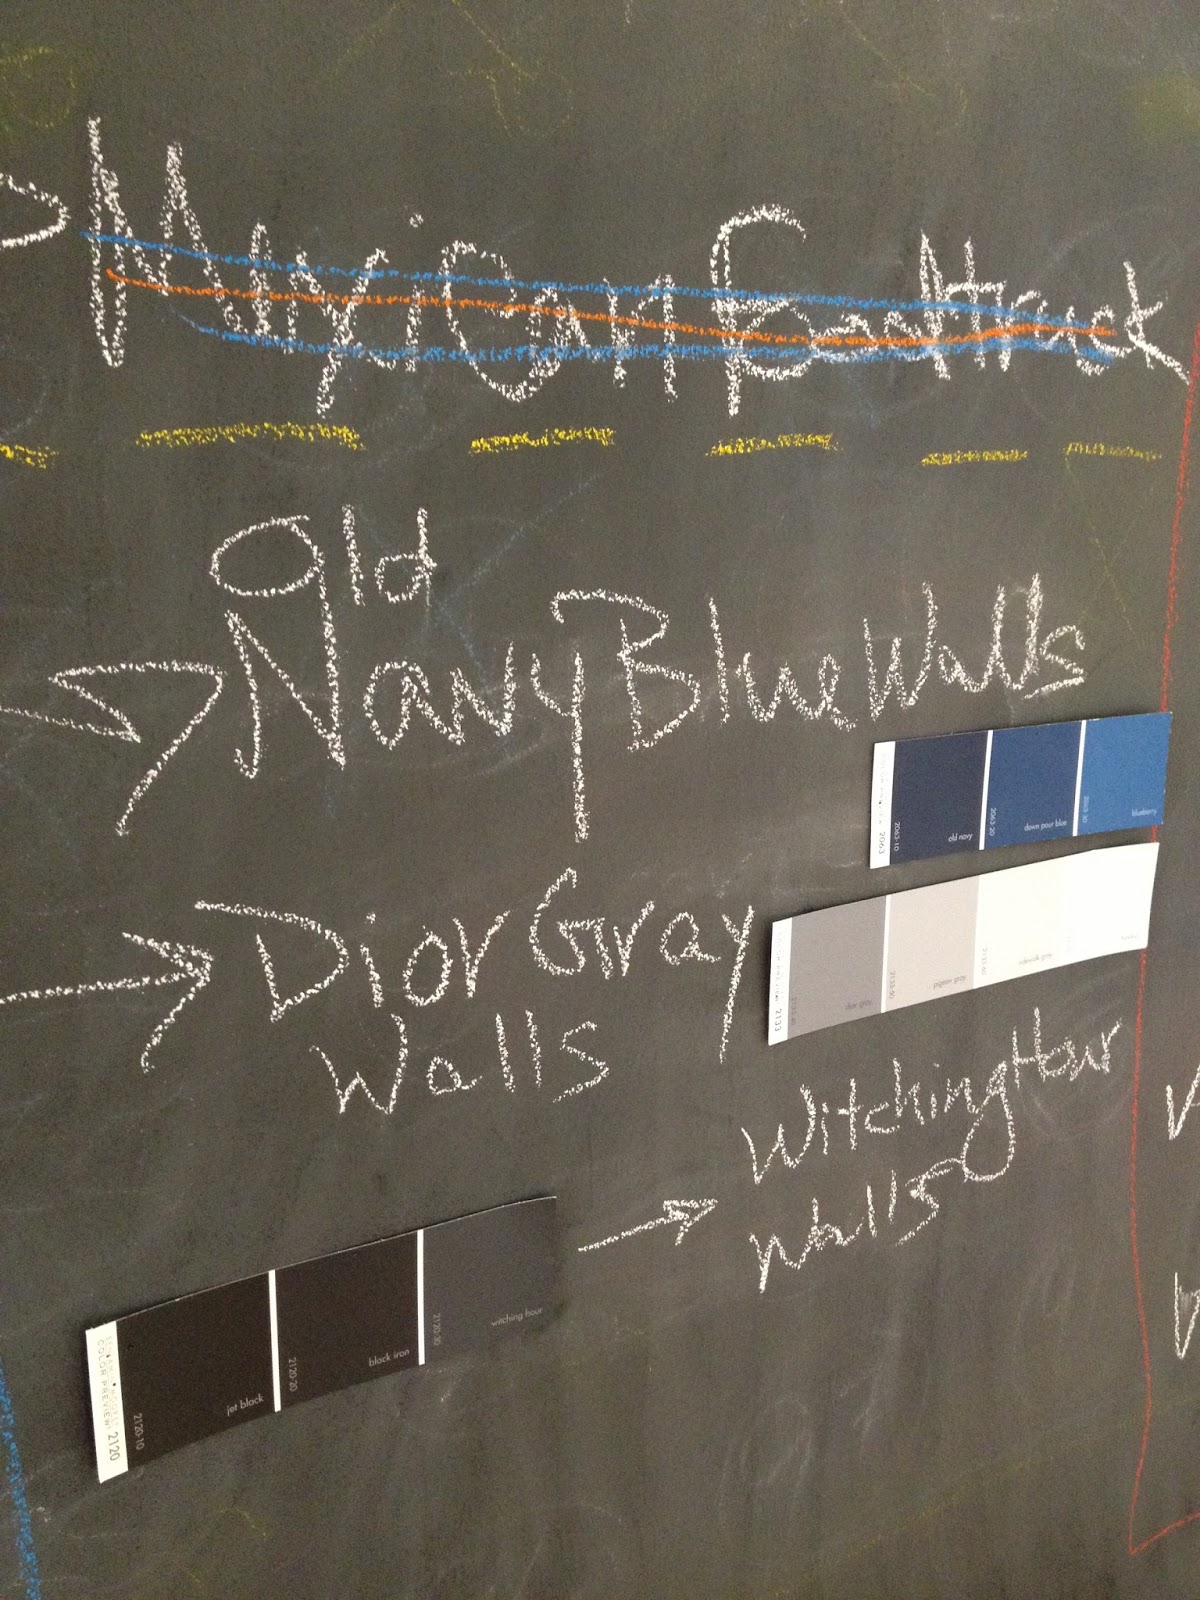 Mexican Food truck
Old
Navy Blue Walls
2063
2063-10
old navy
2063-20
down pour blue
2063-30
blueberry
Dior Gray
Walls
2133
dior gray
2133-50
pigeon gray
2133-60
sidewalk gray
Witching Hour
Walls
COLOR PREVIEW 2120
2120-10
jet black
2120-20
black iron
2120-30
witching hour